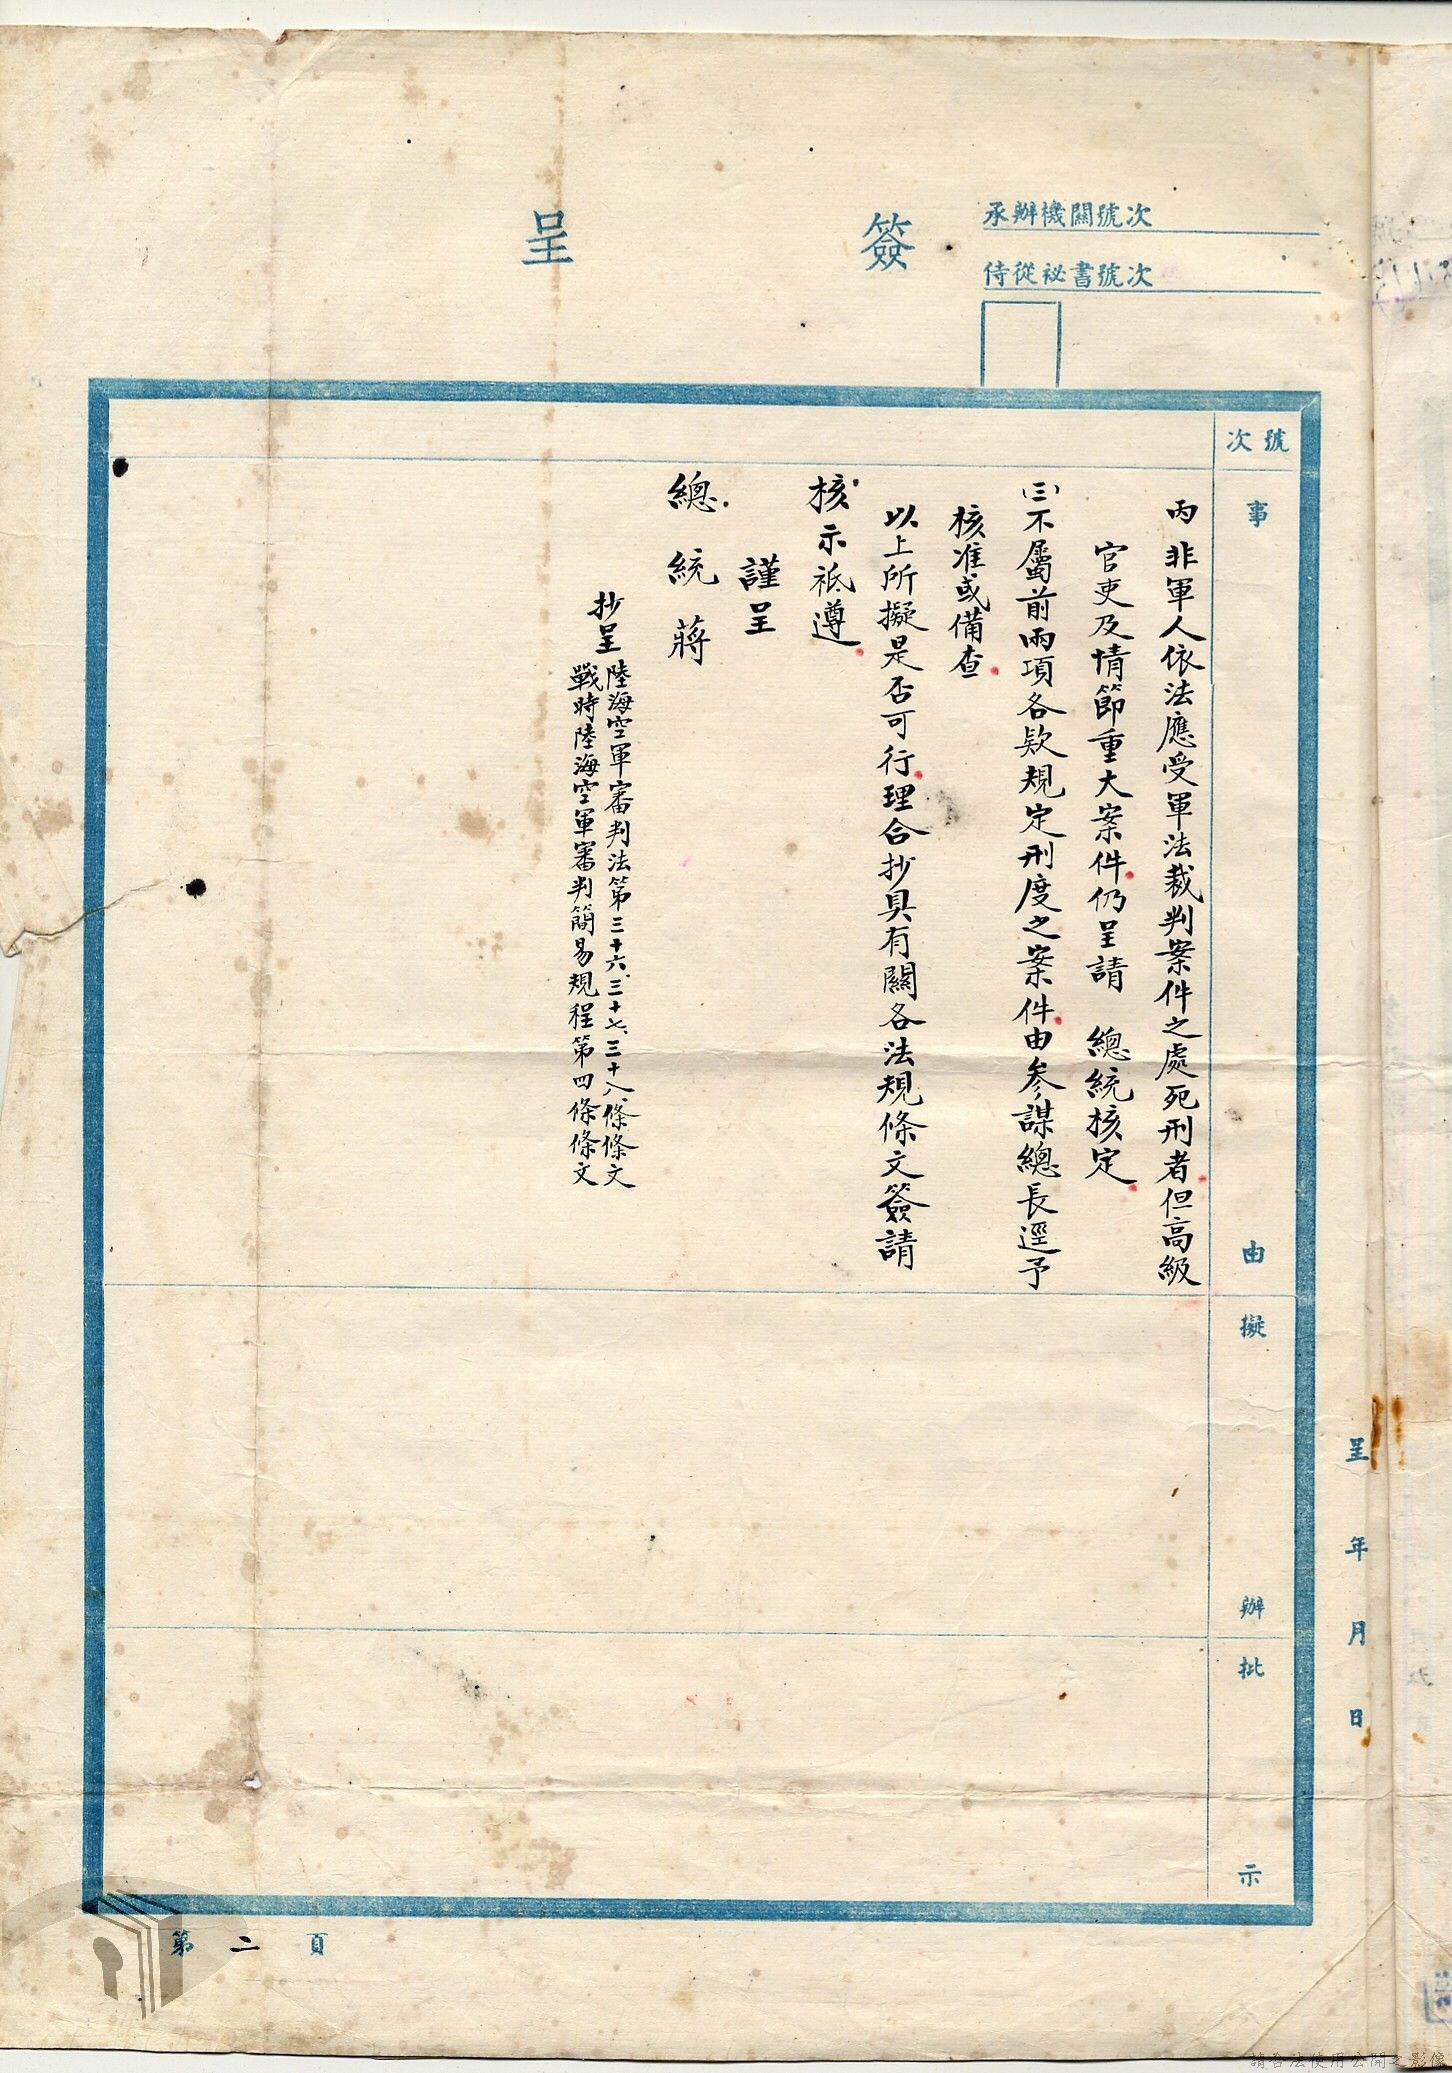 承辦機關號次
侍從祕書號次
簽呈
號次
事由
擬辦
批示
丙 非軍人依法應受軍法裁判案件之處死刑者但高級
官吏及情節重大案件仍呈請 總統核定
㈢不屬前兩項各款規定刑度之案件由參謀總長逕予
核准或備查
以上所擬是否可行理合抄具有關各法規條文簽請
核示祗遵
謹呈
總統 蔣
抄呈
陸海空軍審判法第三十六、三十七、三十八條條文
戰時陸海空軍審判簡易規程第四條條文
呈 年 月 日
第二頁
請合法使用公開之影像